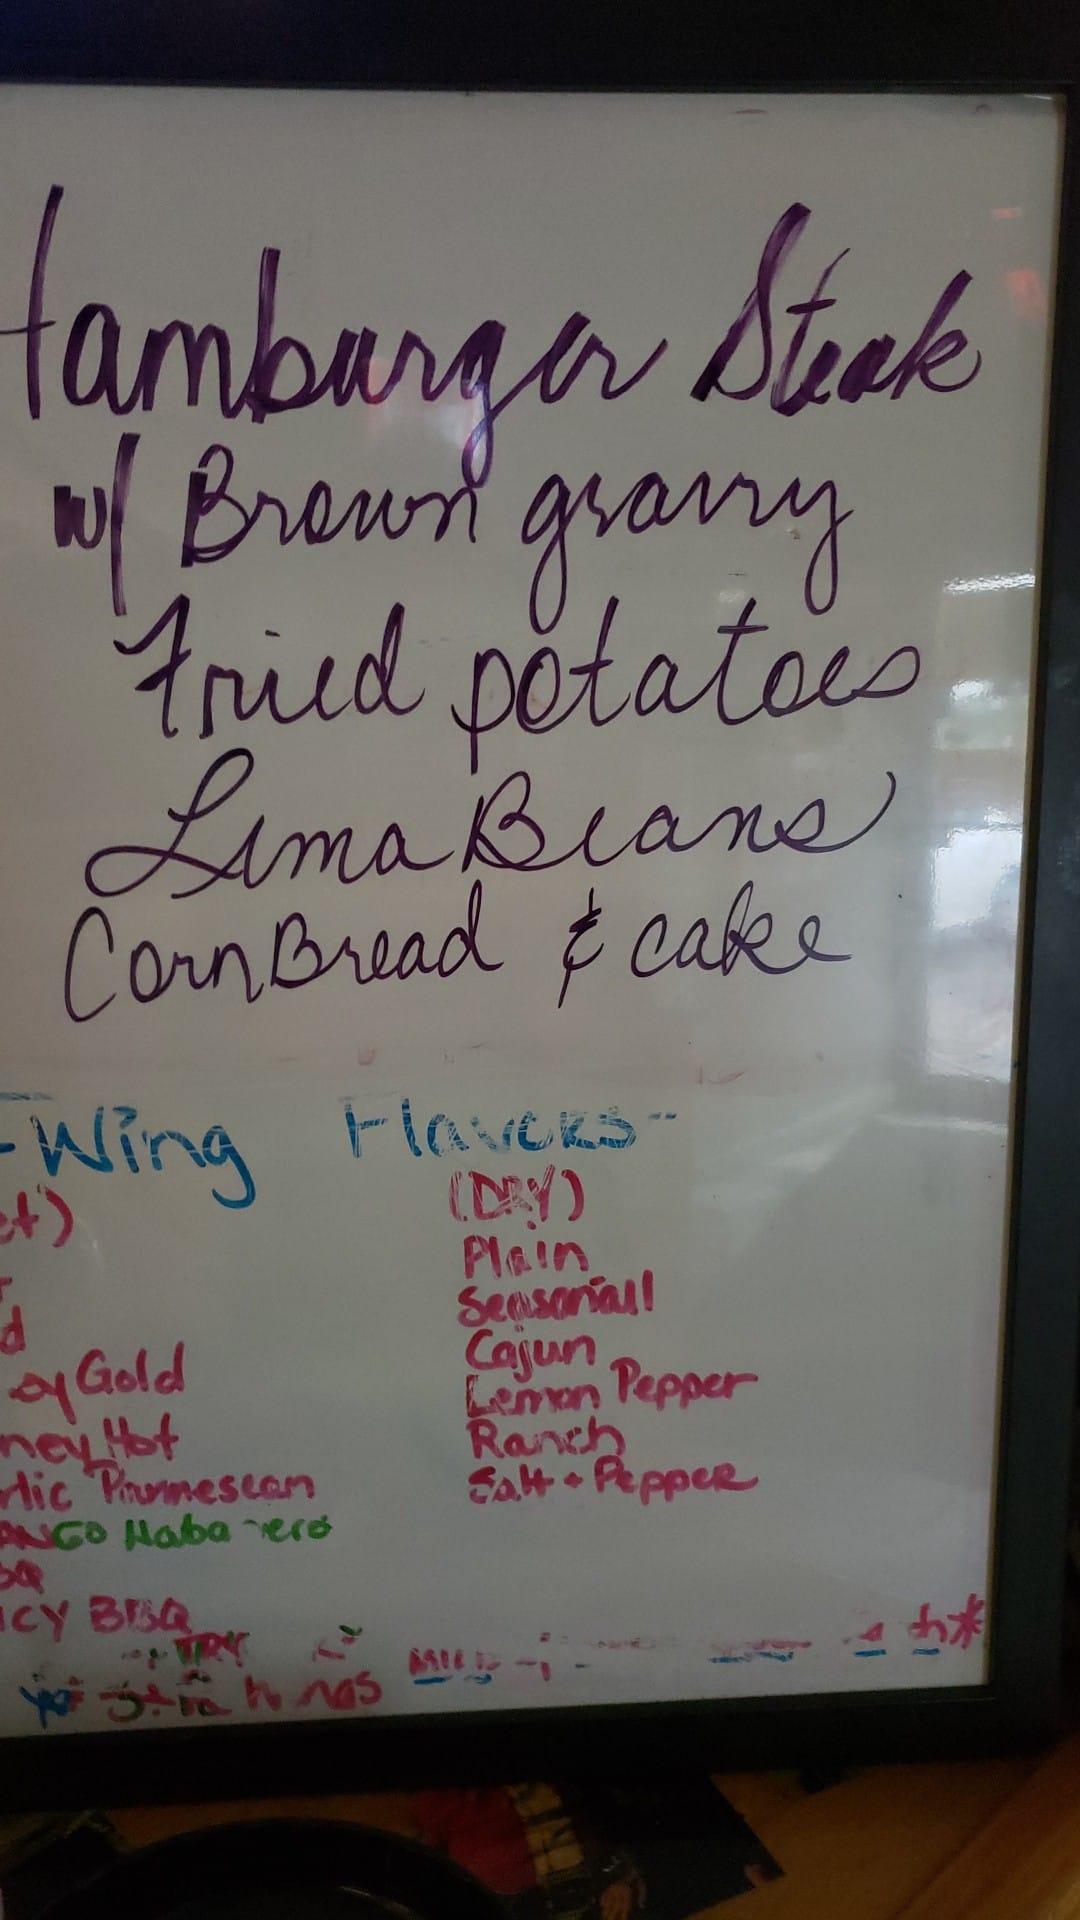 Hamburger Steak
w/ Brown gravy
Fried potatoes
Lima Beans
Corn Bread & cake
-Wing Flavors-
et)
d
ey Gold
ney Hot
rlic Parmesean
ANGO Habanero
BQ
ICY BBQ
(DRY)
Plain
Seasonall
Cajun
Lemon Pepper
Ranch
Salt + Pepper
TRY